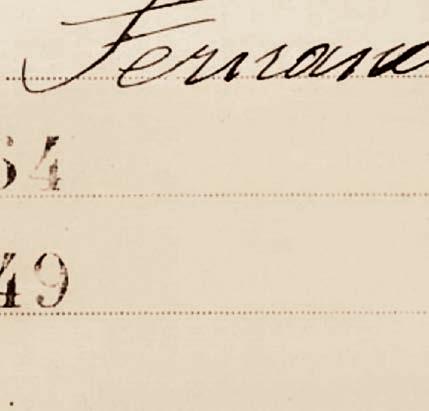 Fernan
4
49